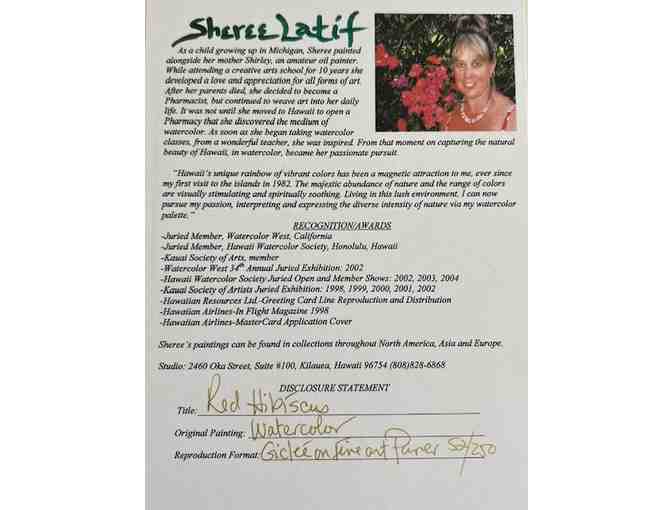 Sheree Latif
As a child growing up in Michigan, Sheree painted
alongside her mother Shirley, an amateur oil painter.
While attending a creative arts school for 10 years she
developed a love and appreciation for all forms of art.
After her parents died, she decided to become a
Pharmacist, but continued to weave art into her daily
life. It was not until she moved to Hawaii to open a
Pharmacy that she discovered the medium of
watercolor. As soon as she began taking watercolor
classes, from a wonderful teacher, she was inspired. From that moment on capturing the natural
beauty of Hawaii, in watercolor, became her passionate pursuit.
"Hawaii's unique rainbow of vibrant colors has been a magnetic attraction to me, ever since
my first visit to the islands in 1982. The majestic abundance of nature and the range of colors
are visually stimulating and spiritually soothing. Living in this lush environment, I can now
pursue my passion, interpreting and expressing the diverse intensity of nature via my watercolor
palette."
RECOGNITION/AWARDS
-Juried Member, Watercolor West, California
-Juried Member, Hawaii Watercolor Society, Honolulu, Hawaii
-Kauai Society of Arts, member
-Watercolor West 34th Annual Juried Exhibition: 2002
-Hawaii Watercolor Society Juried Open and Member Shows: 2002, 2003, 2004
-Kauai Society of Artists Juried Exhibition: 1998, 1999, 2000, 2001, 2002
-Hawaiian Resources Ltd.-Greeting Card Line Reproduction and Distribution
-Hawaiian Airlines-In Flight Magazine 1998
-Hawaiian Airlines-MasterCard Application Cover
Sheree's paintings can be found in collections throughout North America, Asia and Europe.
Studio: 2460 Oka Street, Suite #100, Kilauea, Hawaii 96754 (808)828-6868
DISCLOSURE STATEMENT
Title: Red Hibiscus
Original Painting: Watercolor
Reproduction Format: Giclée on fine art Paper 52/250